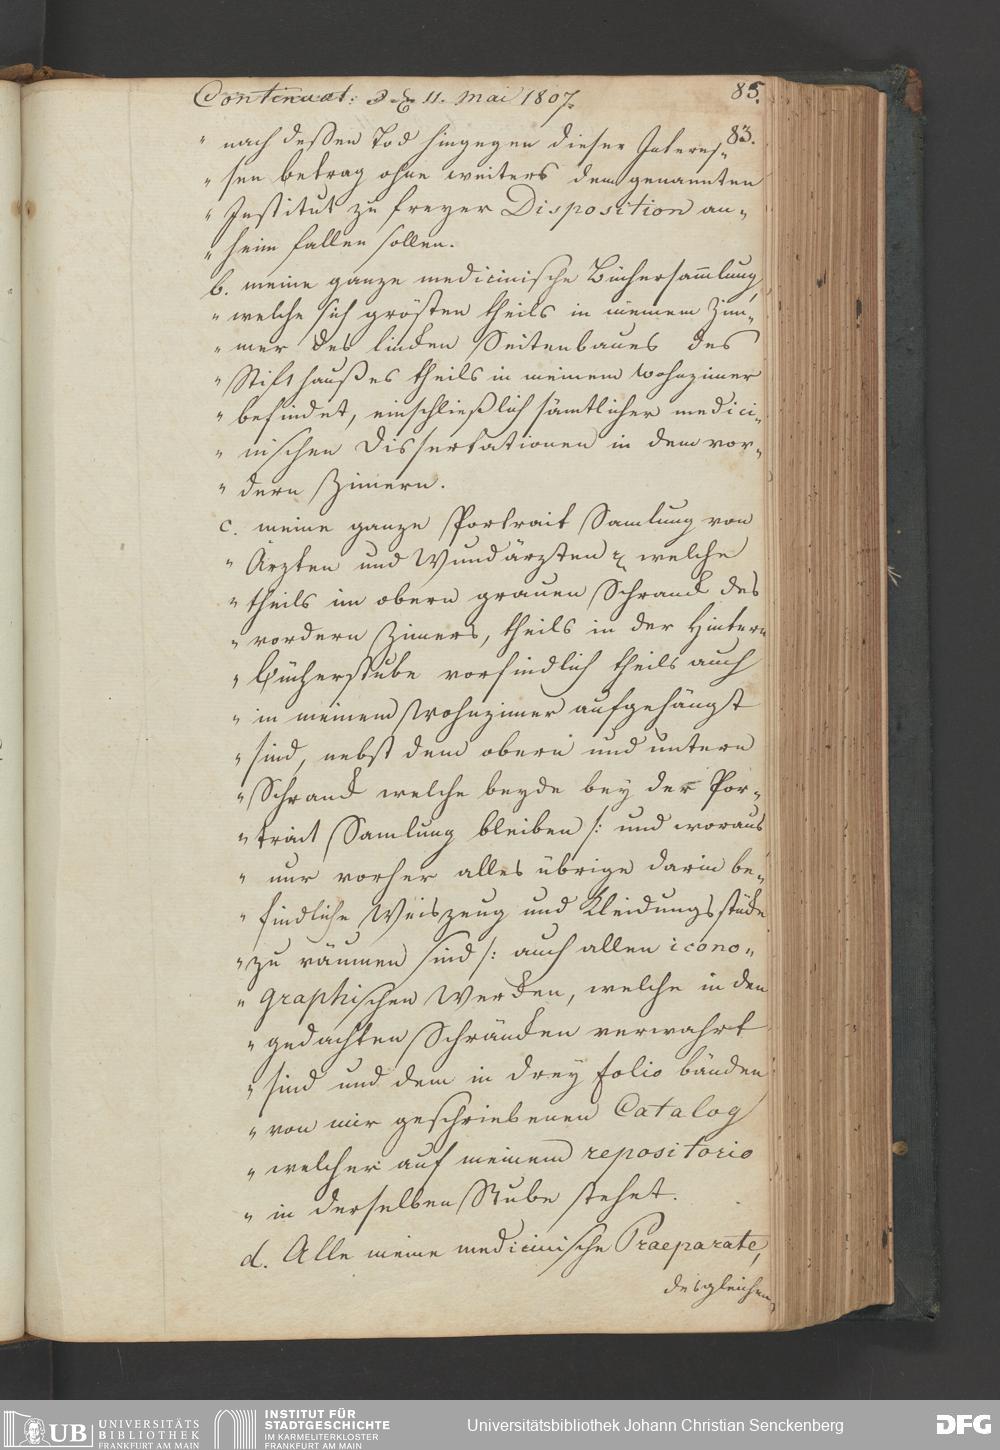 Continuat: d. 11. Mai 1807.
85.
83.
" nach deßen Tod hingegen dieser Interes„
" sen betrag ohne weiters dem genannten
" Institut zu freyer Disposition an„
" heim fallen sollen.
b. meine ganze medicinische Büchersam̄lung
" welche sich grösten theils in meinem Zim„
" mer des lincken Seitenbaues des
" Stifthaußes theils in meinem Wohnzimer
" befindet, einschließlich sämtlicher medici„
" nischen Dissertationen in dem vor„
" dern Zimern.
c. meine ganze Portrait Samlung von
" Ärzten und Wundärzten welche
" theils im obern grauen Schranck des
" vordern Zimers, theils in der Hintern
" Bücherstube vorfindlich theils auch
" in meinem Wohnzimer aufgehängt
" sind, nebst dem obern und untern
" Schranck welche beyde bey der Por„
" trait Samlung bleiben /: und woraus
" nur vorher alles übrige darin be„
" findliche Weiszeug und Kleidungsstücke
" zu räumen sind /: auch allen icono„
" graphischen Wercken, welche in den
" gedachten Schräncken verwahrt
" sind und dem in drey folio bänden
" von mir geschriebenen Catalog
" welcher auf meinem repositorio
" in derselben Stube stehet.
d. Alle meine medicinische Praeparate,
desgleichen
UB UNIVERSITÄTS
BIBLIOTHEK
FRANKFURT AM MAIN
INSTITUT FÜR
STADTGESCHICHTE
IM KARMELITERKLOSTER
FRANKFURT AM MAIN
Universitätsbibliothek Johann Christian Senckenberg
DFG